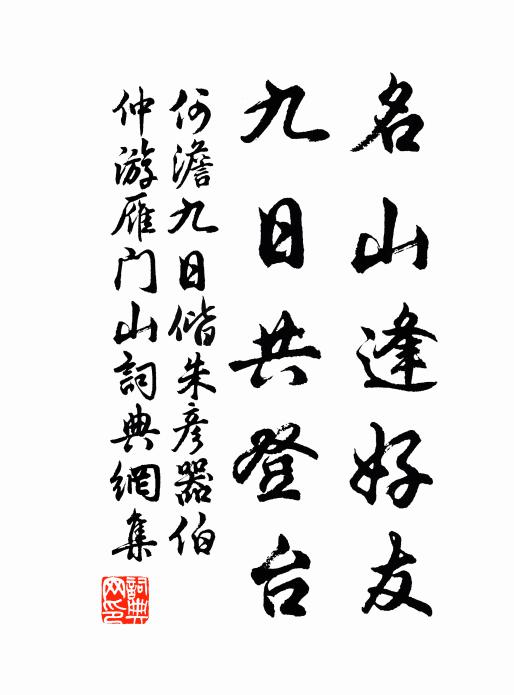 名山逢好友
九日共登台
何澹九日偕朱彦器伯
仲游雁门山詞典網集
詞典网印